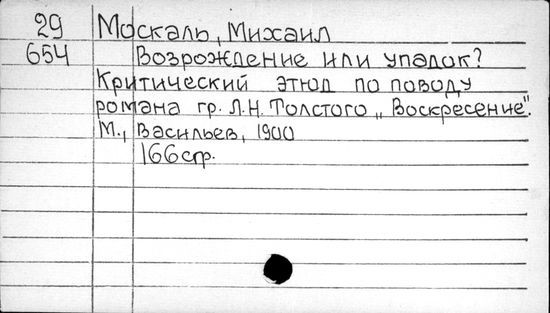 29 Москаль, Михаил
654 Возрождение или упадок?
Критический этюд по поводу
романа гр. Л.Н. Толстого „Воскресение".
М., Васильев, 1900
166 стр.